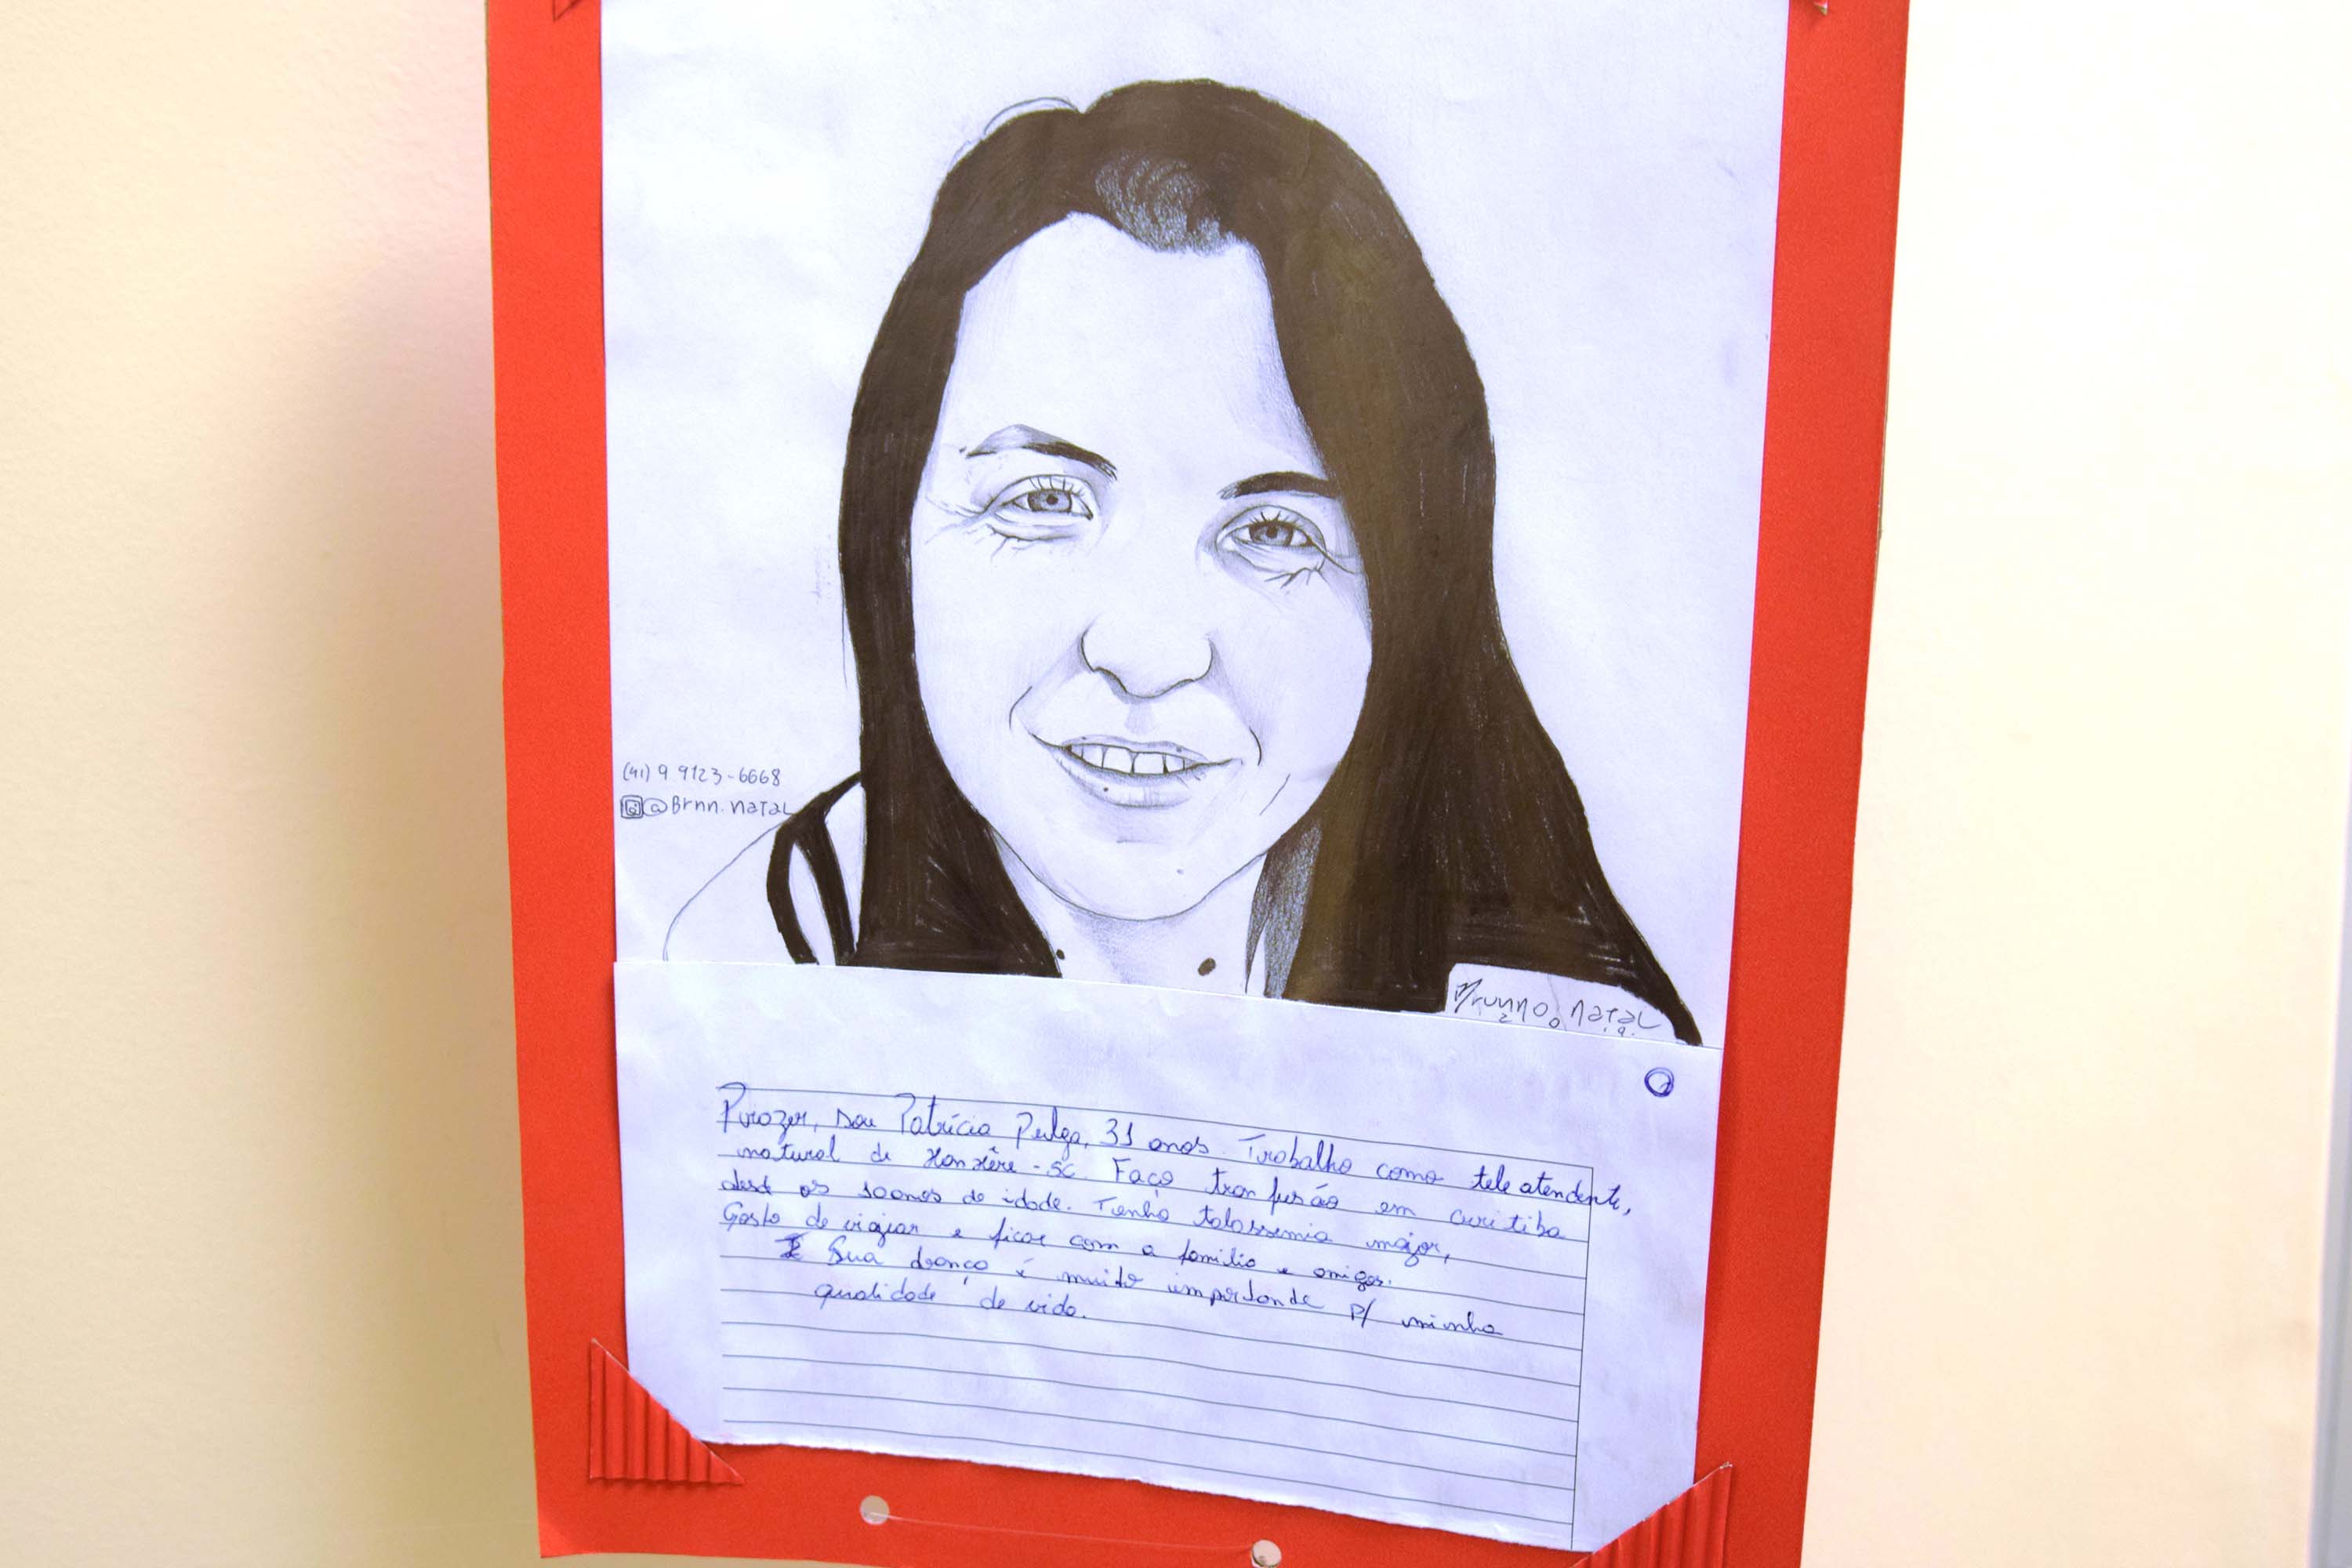 (41) 9 9123-6668
@Brnn.natal
Brunno.natal
2 0 1 9.
Prazer, sou Patrícia Pulga, 31 anos. Trabalho como tele atendente,
natural de Xanxêre - SC. Faço tranfusão em curitiba
desde os 10 anos de idade. Tenho talassemia major,
Gosto de viajar e ficar com a familia e amigos.
Sua doança é muito importante p/ minha
qualidade de vida.